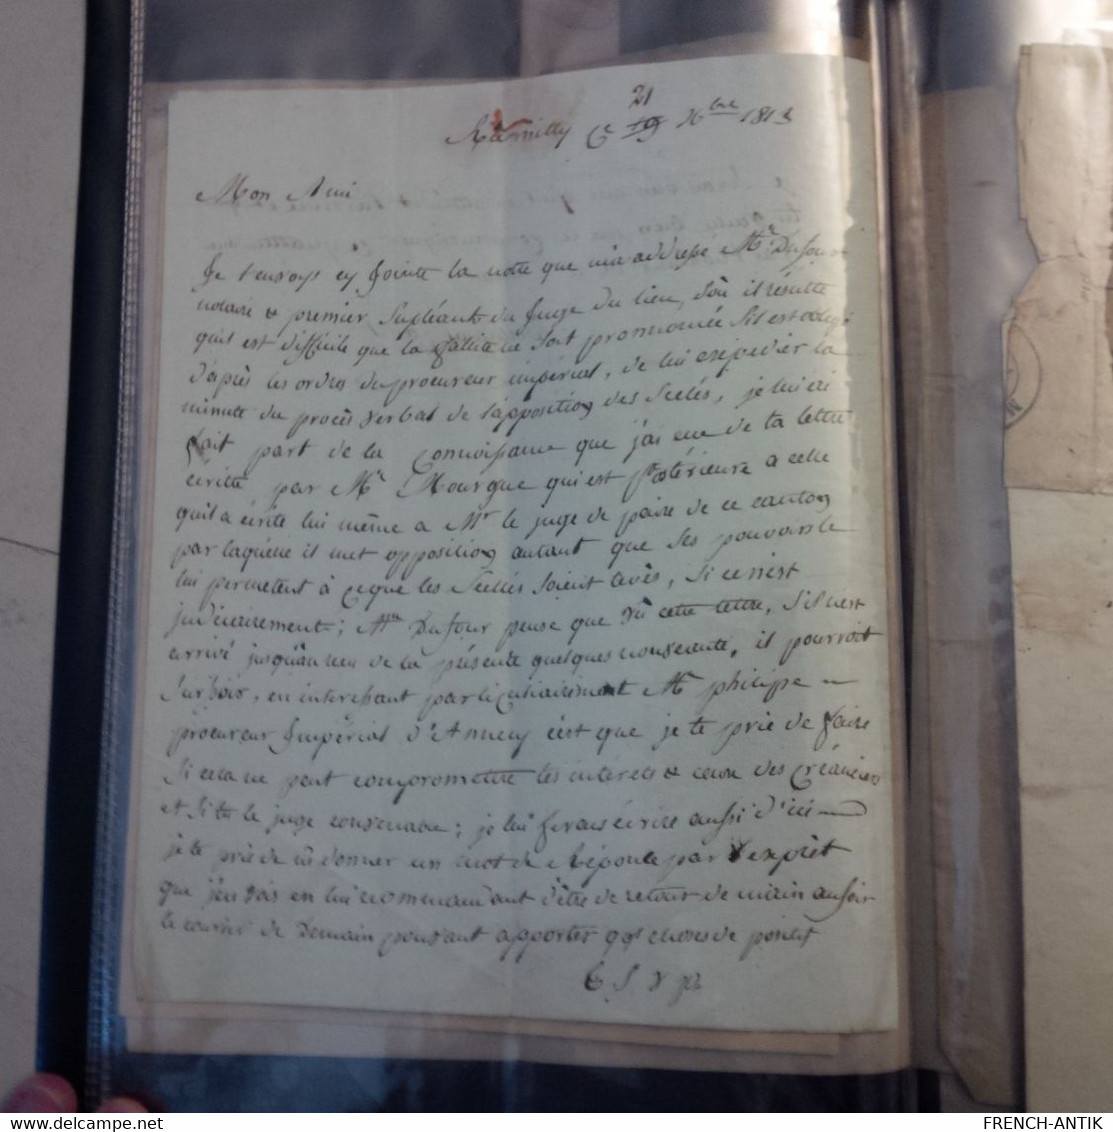 Rumilly Ce 21 19 10bre 1813
Mon Ami
Je t'envoys cy Jointe la notte que m'a addressé Mr Dufour
notaire & premier Supléant du Juge du lieu, d'où il résulte
qu'il est difficile que la faillite ne soit prononcée S'il est obligé
d'après les ordres du procureur impérial, de lui expedier la
minute du procès verbal de l'apposition des Scelés, je lui ai
fait part de la Connoissance que j'ai eue de ta lettre
écritte par Mr Mourgue qui est postérieure a celle
qu'il a écrite lui même a Mr le juge de paix de ce canton
par laquelle il met opposition autant que Ses pouvoirs le
lui permettent à ce que les Scellés Soient levés, Si ce n'est
judiciairement; Mr Dufour pense que vû cette lettre, S'il n'est
arrivé jusqu'au reçu de la présente quelques nouveauté, il pourroit
Surseoir, en interessant particulierement Mr philippe
procureur Impérial d'Annecy c'est que je te prie de faire
Si cela ne peut compromettre tes intérêts & ceux des Créanciers
et Si tu le juge convenable; je lui ferais écrire aussi d'ici
je te prie de me donner un mot de Réponse par l'exprèt
que j'envois en lui recommendant d'être de retour demain au Soir
le courier de Demain pouvant apporter qql choses de positif
FRENCH-ANTIK